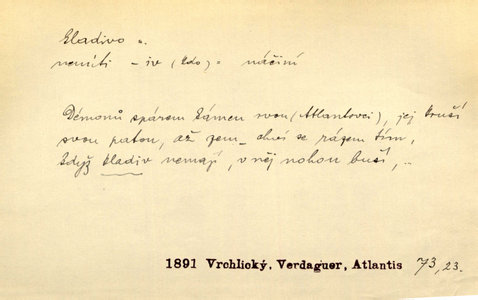 kladivo n.
nemíti – iv (kdo) = náčiní
Démonů spárem kámen rvou (Atlantovci), jej kruší
svou patou, až zem_ chví se rázem tím,
když kladiv nemají, v něj nohou buší, ..
1891 Vrchlický, Verdaguer, Atlantis 73, 23.